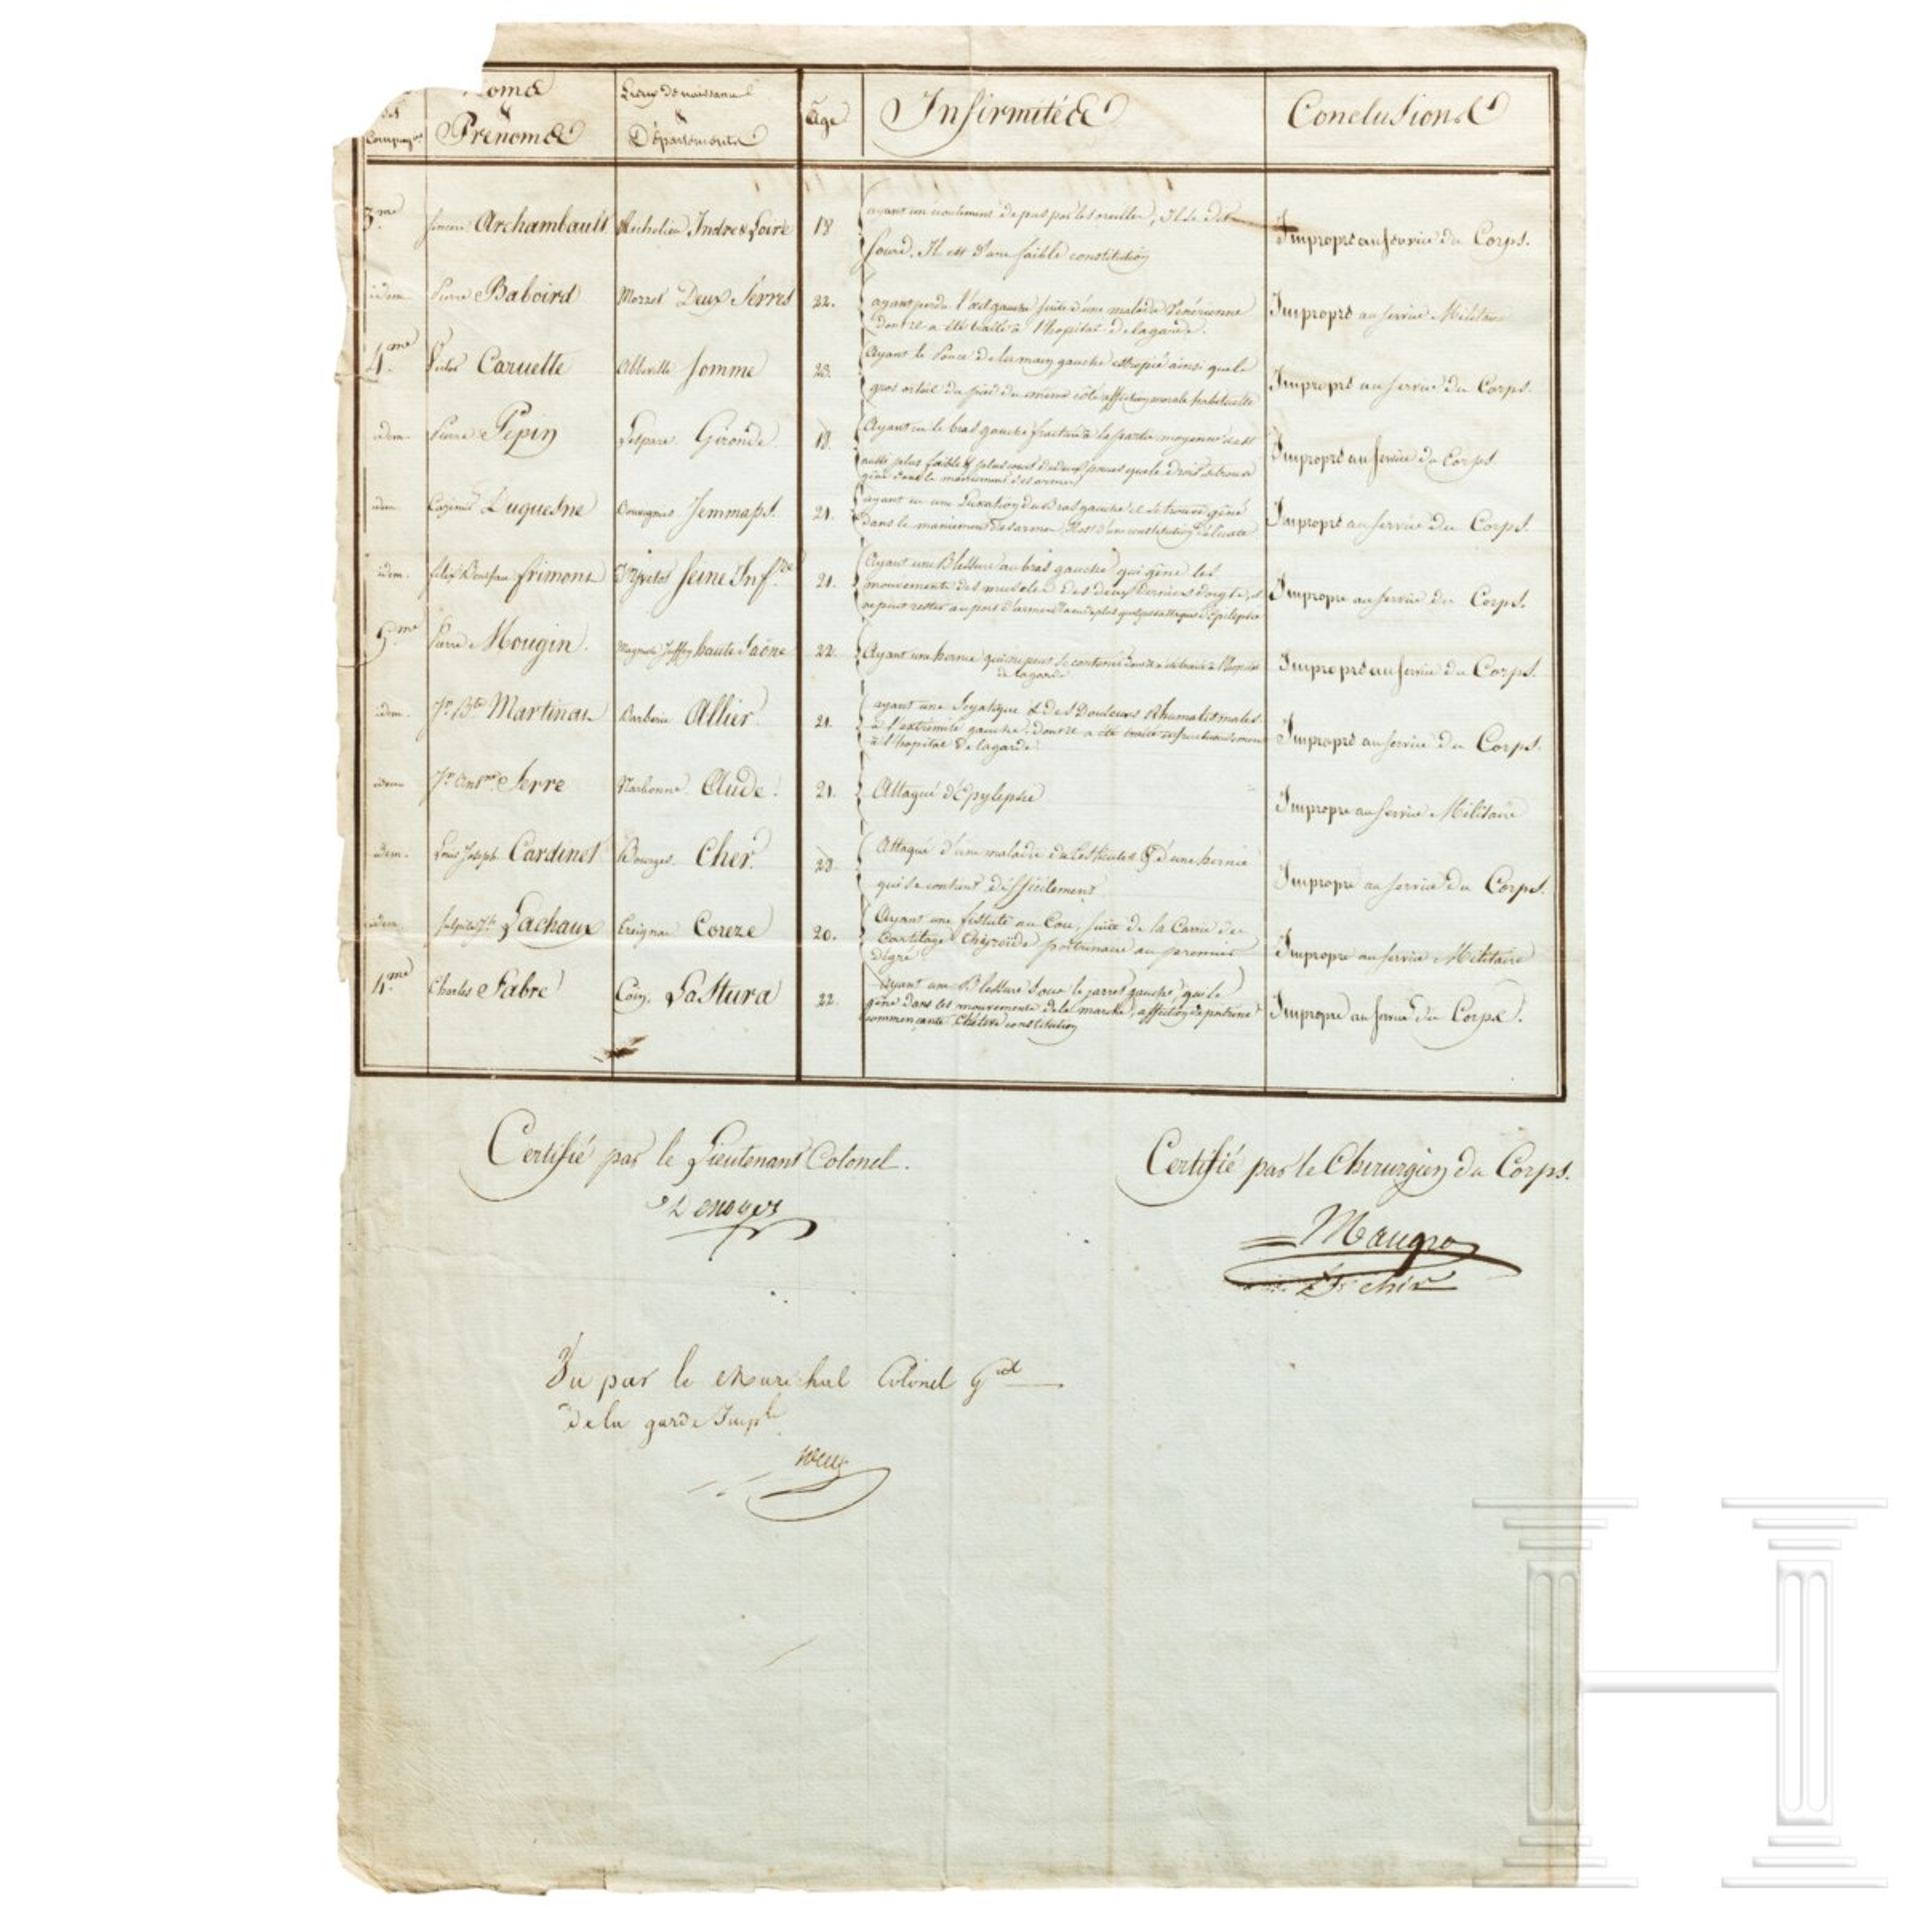 Noms
&
Prénoms
Lieux de naissance
&
Départements
Age
Infirmités
Conclusions
des
Compagnies
3.me Simeon Archambault Richelieu Indre & Loire 18 ayant un écoulement de pus par les oreilles, Il se dit
sourd. Il est d'une faible constitution
Impropre au service du Corps.
idem Pierre Baboird Deux Sevres 22. ayant perdu l'œil gauche suite d'une maladie Vénérienne
dont il a été traité à l'hopital de la garde.
Impropre au service Militaire
4.me Victor Caruette Abbeville Somme 23. Ayant le Pouce de la main gauche estropié ainsi que le
gros orteil du pied du même côté affection morale habituelle
Impropre au service du Corps.
idem Pierre Pepin Lespare Gironde 18. Ayant eu le bras gauche fracturé à la partie moyenne
aussi plus faible & plus court de deux pouces que le droit se trouve
gêné dans le maniement des armes
Impropre au service du Corps.
idem Duquesne Jemmaps. 21. ayant eu une Luxation du Bras gauche il se trouve gêné
dans le maniement des armes Il est d'une constitution délicate
Impropre au service du Corps.
idem. felix frimont Yvetot Seine Inf.re 21. Ayant une Blessure au bras gauche qui gêne les
mouvements des muscles des deux derniers doigts, et
ne peut rester au port d'armes Il a eu de plus quelques attaques d'Epilepsie
Impropre au service du Corps.
5.me Pierre Mougin. haute Saône 22. Ayant une hernie qui ne peut se contenir dont il a été traité à l'hopital
de la garde
Impropre au service du Corps.
idem. Jn Bte Martinat Allier 21. ayant une Scyatique & des Douleurs Rhumatismales
à l'extremité gauche. dont il a été traité infructueusement
à l'hopital de la garde
Impropre au service du Corps.
idem Jn Antne Serre Narbonne Aude. 21. Attaqué d'Epylepsie
Impropre au service Militaire
idem. Louis Joseph Cardinet Bourges Cher. 23 Attaqué d'une maladie du testicules & d'une hernie
qui se contient difficilement
Impropre au service du Corps.
idem Lachaux Coreze 20. Ayant une fistule au Cou, suite de la Carrie du
Cartilage Thyroïde poitrinaire au premier
dégré
Impropre au service Militaire
4.me Charles Fabre Coni. La Stura 22. Ayant une Blessure sous le jarret gauche, qui le
gêne dans les mouvements de la marche, affection de poitrine
commençante Chétive constitution
Impropre au service du Corps.
Certifié par le Lieutenant Colonel.
Desnoyers
Certifié par le Chirurgien du Corps.
Maugras
Vu par le Marechal Colonel Gral
de la garde Imple